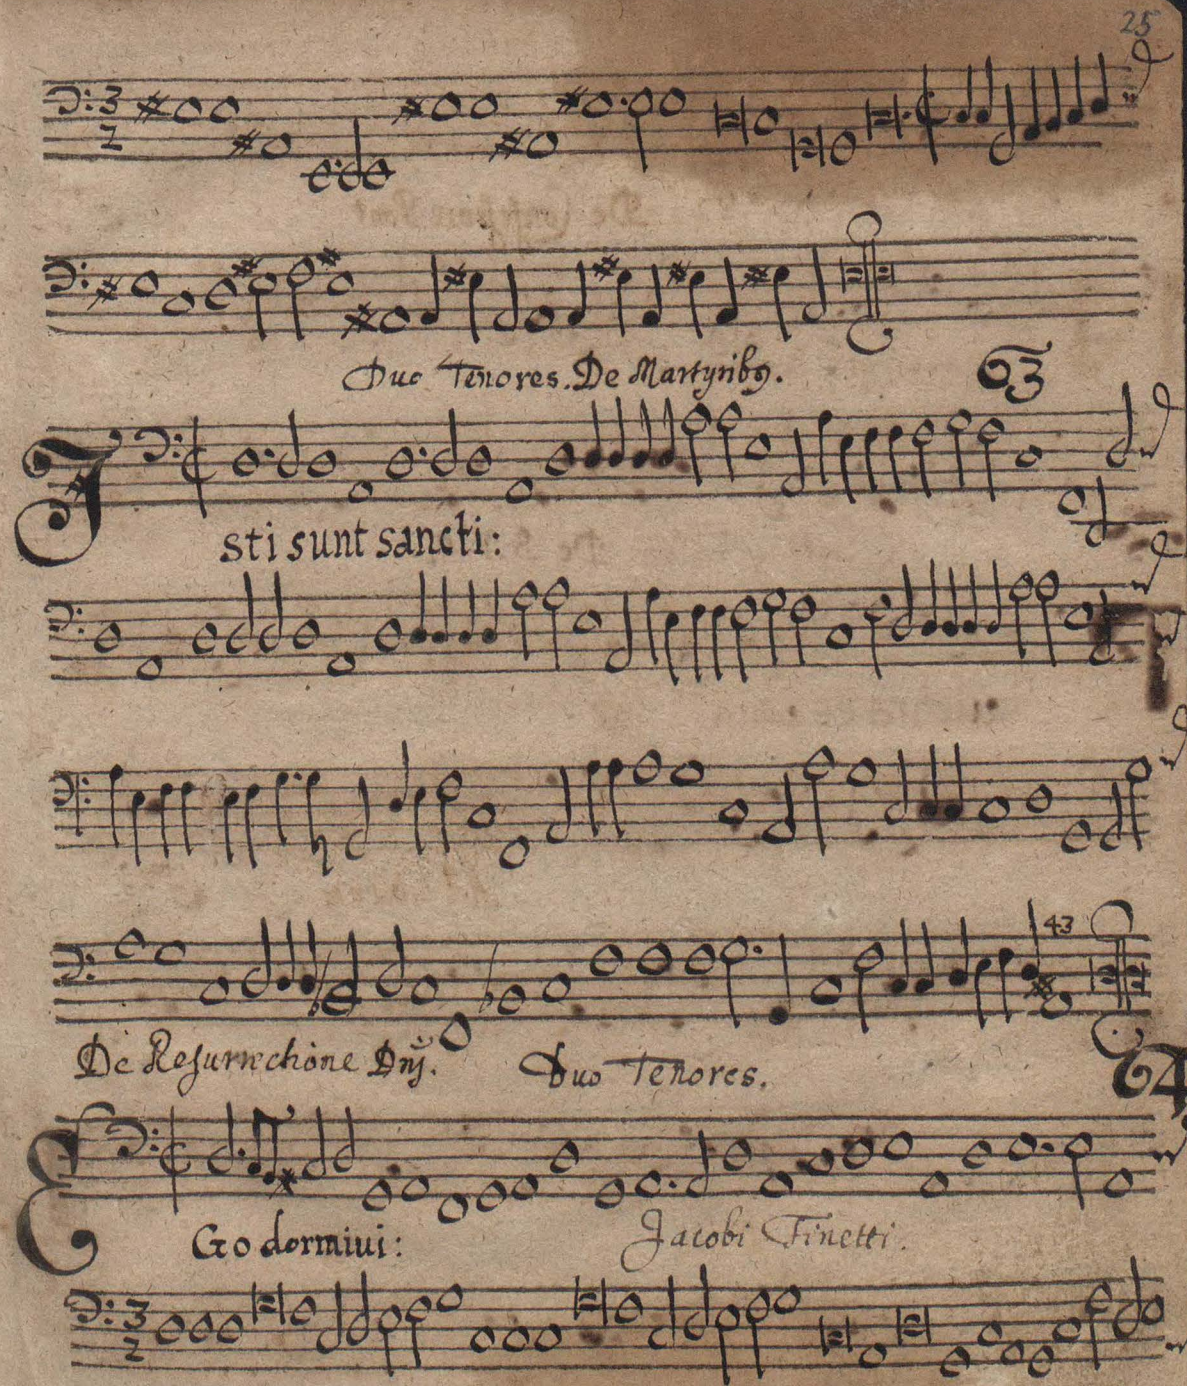 25
3
2
Duo Tenores. De Martyribꝰ.
63
Isti sunt sancti:
43
De Resurrectione Dnj. Duo Tenores.
64
EGo dormiui: Jacobi Finetti.
3
2